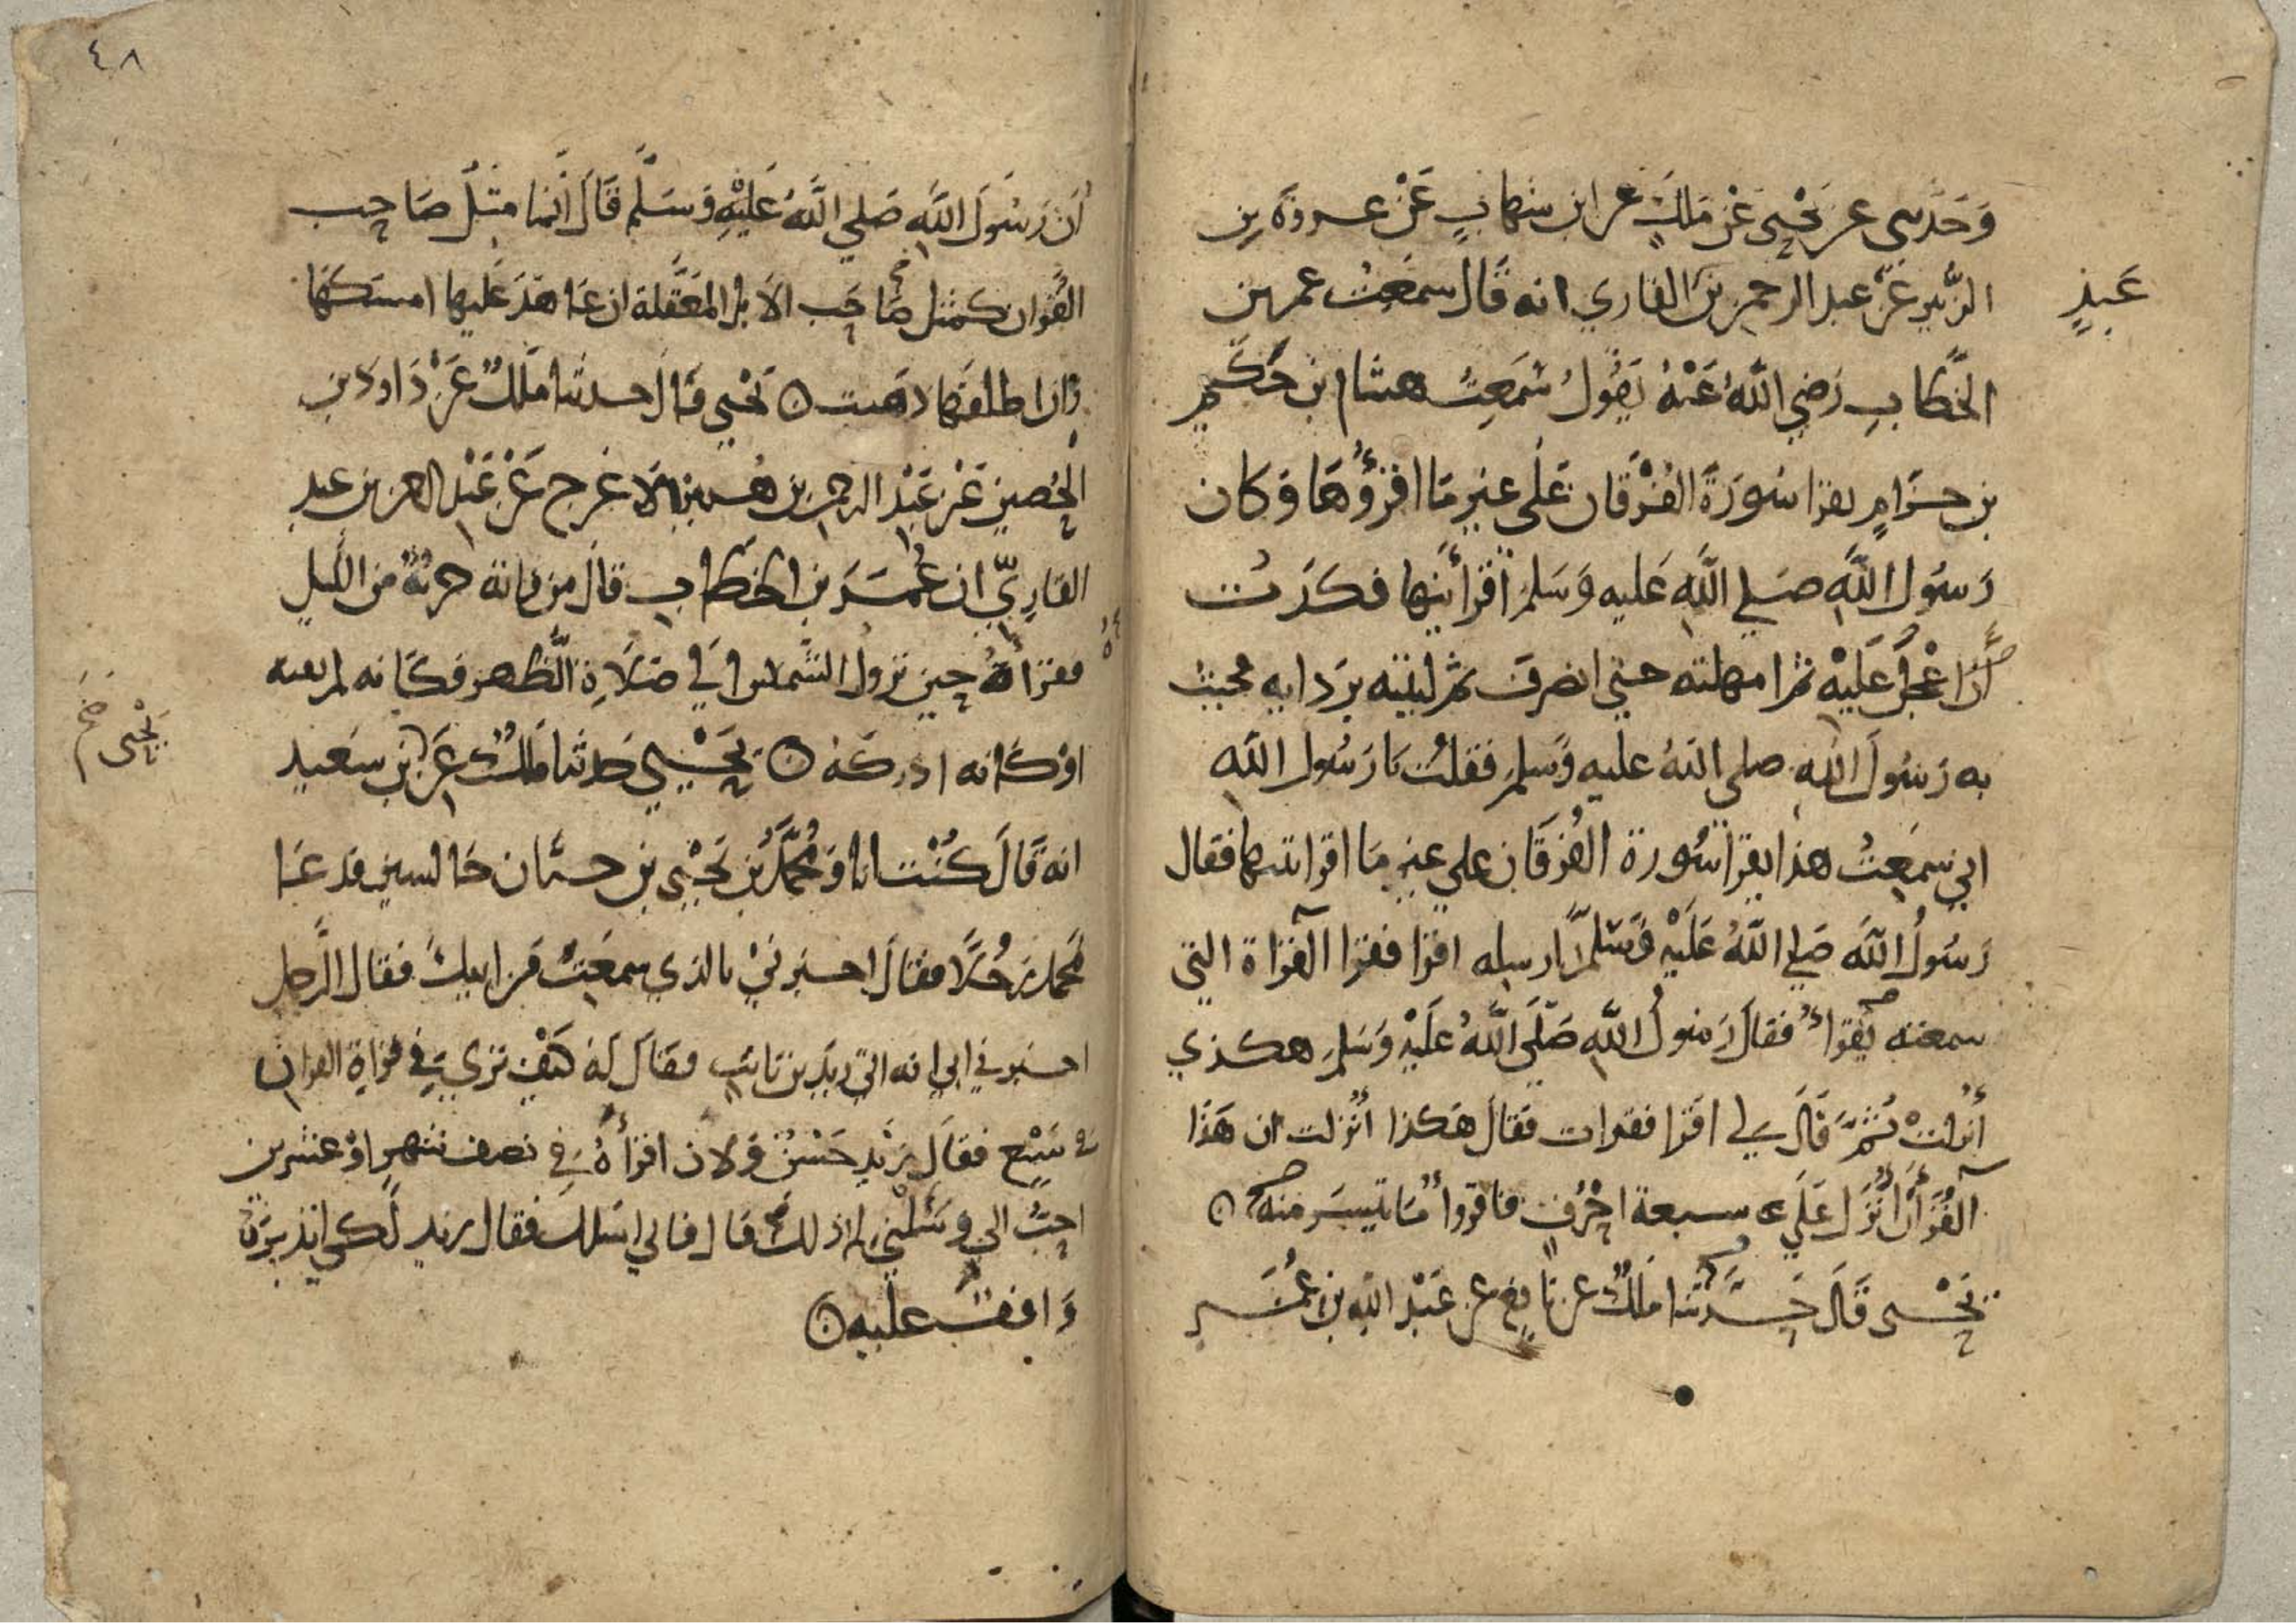 وَحَدَّثني عن يَحْيى عَنْ مَلكٍ عن ابن شهابٍ عَنْ عروة بن
عَبدٍ
الزبير عَن عبد الرحمن بن القاري انه قَال سمعتُ عمر بن
الخَّطابِ رَضي اللَّهُ عَنْهُ يَقُولُ سَمِعتُ هشام بن حَكيم
بن حِزَامٍ يقرا سُورَةَ الفُرْقَان عَلى غير مَا اقرؤُهَا وَكان
رَسُول اللَّهِ صَلي اللَّه عَليه وَسَلم اقرأنيها فكدتُ
أن اعْجَل عَليْه ثم امهلته حتى انصرف ثم لببته بردايه فجيت
به رَسُولَ اللهِ صلى اللهُ عليه وَسلم فقلتُ يَا رَسُول اللهِ
اني سَمِعتُ هذا يقرا سُورة الفُرقَان على غير مَا اقراتنيها فقال
رَسُولُ اللَّهِ صَلي اللَّهُ عَلَيْهِ وَسَلَّم ارسله اقرا فقرا القراة التي
سمعته يقرأ فقالَ رَسُولُ اللَّهِ صَلَّى اللَّهُ عَليْهِ وَسَلم هكذي
أنزلتْ ثمَّ قَالَ لي اقرا فقرات فقالَ هَكذا أنزلت ان هَذَا
القُرآن أُنزلَ عَلَى سبعة احْرُفٍ فاقروا مَا تيسر منه
يَحْيى قَالَ حَدَّثنا مَلكٌ عن نافع عن عَبْد الله بن عُمَر
٤٨
أن رَسُولَ اللَّهِ صَلي اللَّهُ عَليْهِ وَسَلَّم قَالَ إنما مثلُ صَاحِب
القُران كمثل صَاحِب الابل المعَقَّلة ان عَاهَدَ عَليها امسَكَها
وان اطلقَها ذهبت يَحْيى قال حدثنا مَلكٌ عَنْ دَاود بن
الحُصين عَنْ عَبْد الرحمن بن هرمز الاعرج عَنْ عَبْد الرحمن بن عبدٍ
القَارِيِّ ان عُمَرَ بن الخطاب قالَ من فاته حزبُهُ من الليلِ
فقرأهُ حِين تزول الشَّمس الى صَلَاةِ الظهر فكَانه لم يفته
يَحْيى
اوْ كَانه ادركَهُ يَحْيي حدثنا مَلكٌ عَن بن سَعيد
انه قَالَ كُنْت انا وَمُحمَّدُ بن يَحْيى بن حبَّان جَالسين فدعَا
محمد رَجُلًا فقالَ اخبرنيْ بالذي سمعْتَ من ابيكَ فقال الرجل
اخبرني ابي انه اتى زيد بن ثابت فقالَ لَه كيْف ترى في قراةِ القران
في سَبْع فقالَ زَيْد حَسَنٌ وَلان اقرأهُ في نصف شهرٍ اوْ عشرين
احبُّ الي وَسَلْني لم ذلك قال فاني اسَلك فقال زيد لكي اتدبرَهُ
وَاقفَ عليه